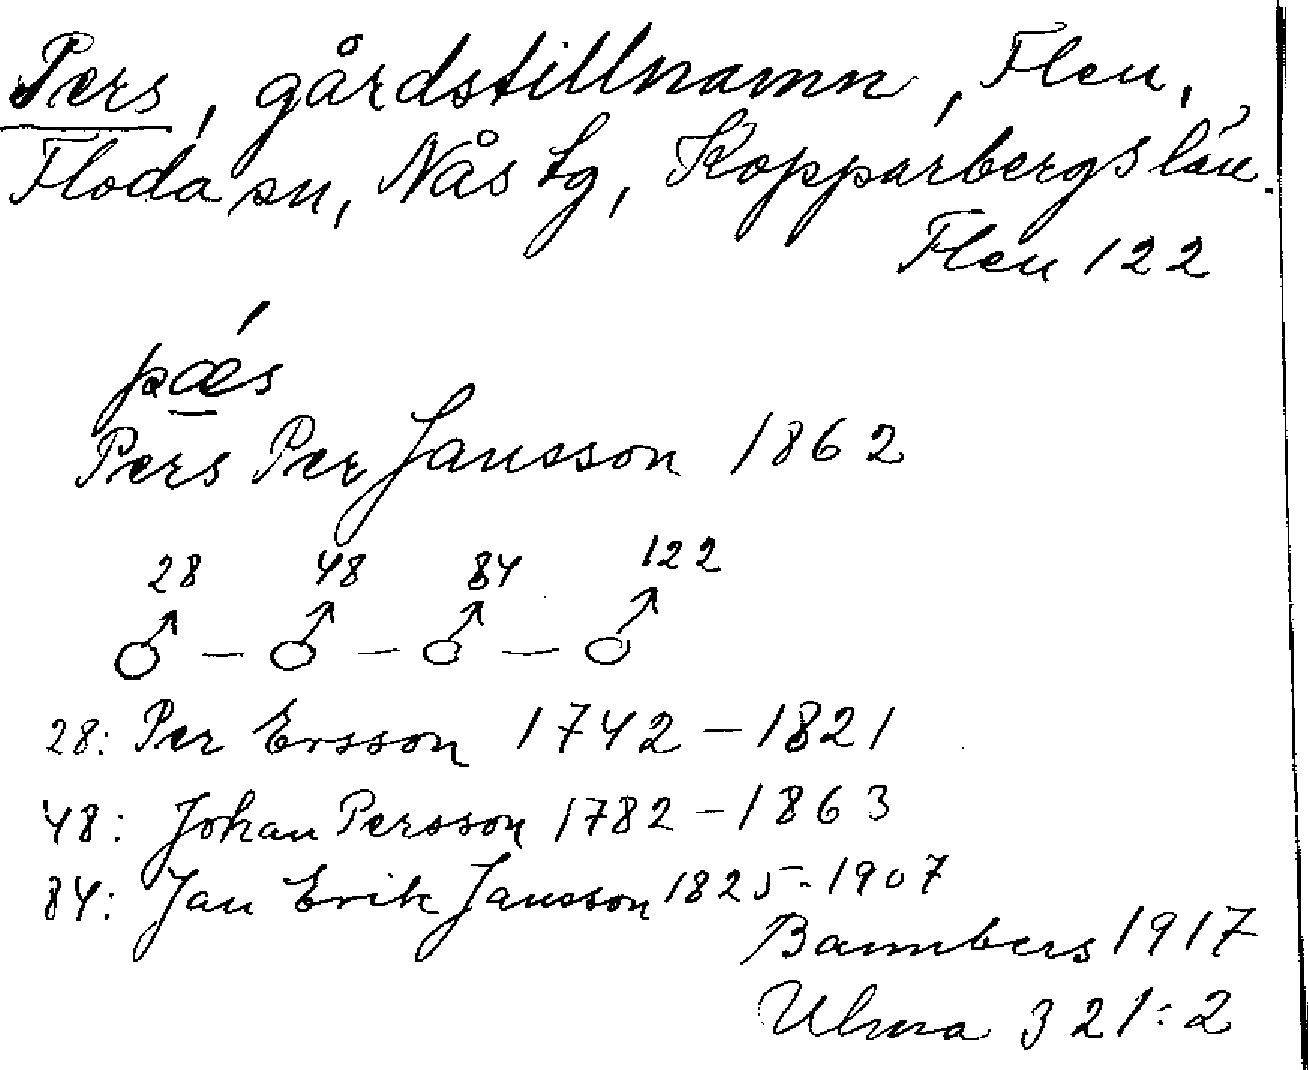 Pers, gårdstillnamn, Flen,
Floda sn, Nås tg, Kopparbergs län.
Flen 122
pæ̲s
Pers Per Jansson 1862
28 48 84 122
♂ — ♂ — ♂ — ♂
28: Per Ersson 1742 – 1821
48: Johan Persson 1782 – 1863
84: Jan Erik Jansson 1825 - 1907
Bannbers 1917
Ulma 321:2